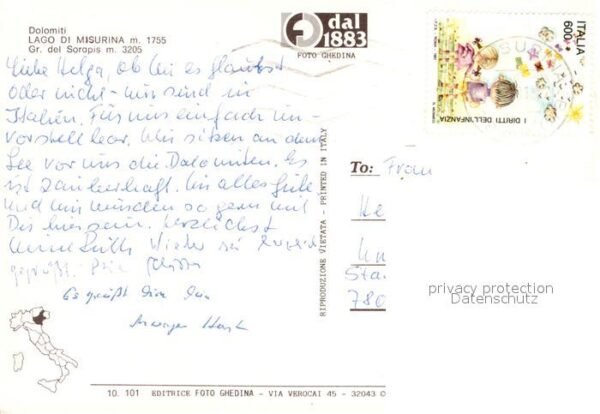 Dolomiti
LAGO DI MISURINA m. 1755
Gr. del Sorapis m. 3205
dal
1883
FOTO GHEDINA
ITALIA
600
I DIRITTI DELL'INFANZIA
Liebe Helga, ob Du es glaubst
oder nicht - wir sind in
Italien. Für uns einfach un-
vorstellbar. Wir sitzen an dem
See vor uns die Dolomiten. Es
ist zauberhaft. Dir alles Gute
und wir würden so gern mit
Dir hier sein. Herzlichst
Deine Ruth
Es grüßt Dich Dein
Schwager Horst
RIPRODUZIONE VIETATA - PRINTED IN ITALY
To: Frau
780
privacy protection
Datenschutz
10. 101 EDITRICE FOTO GHEDINA - VIA VEROCAI 45 - 32043 C